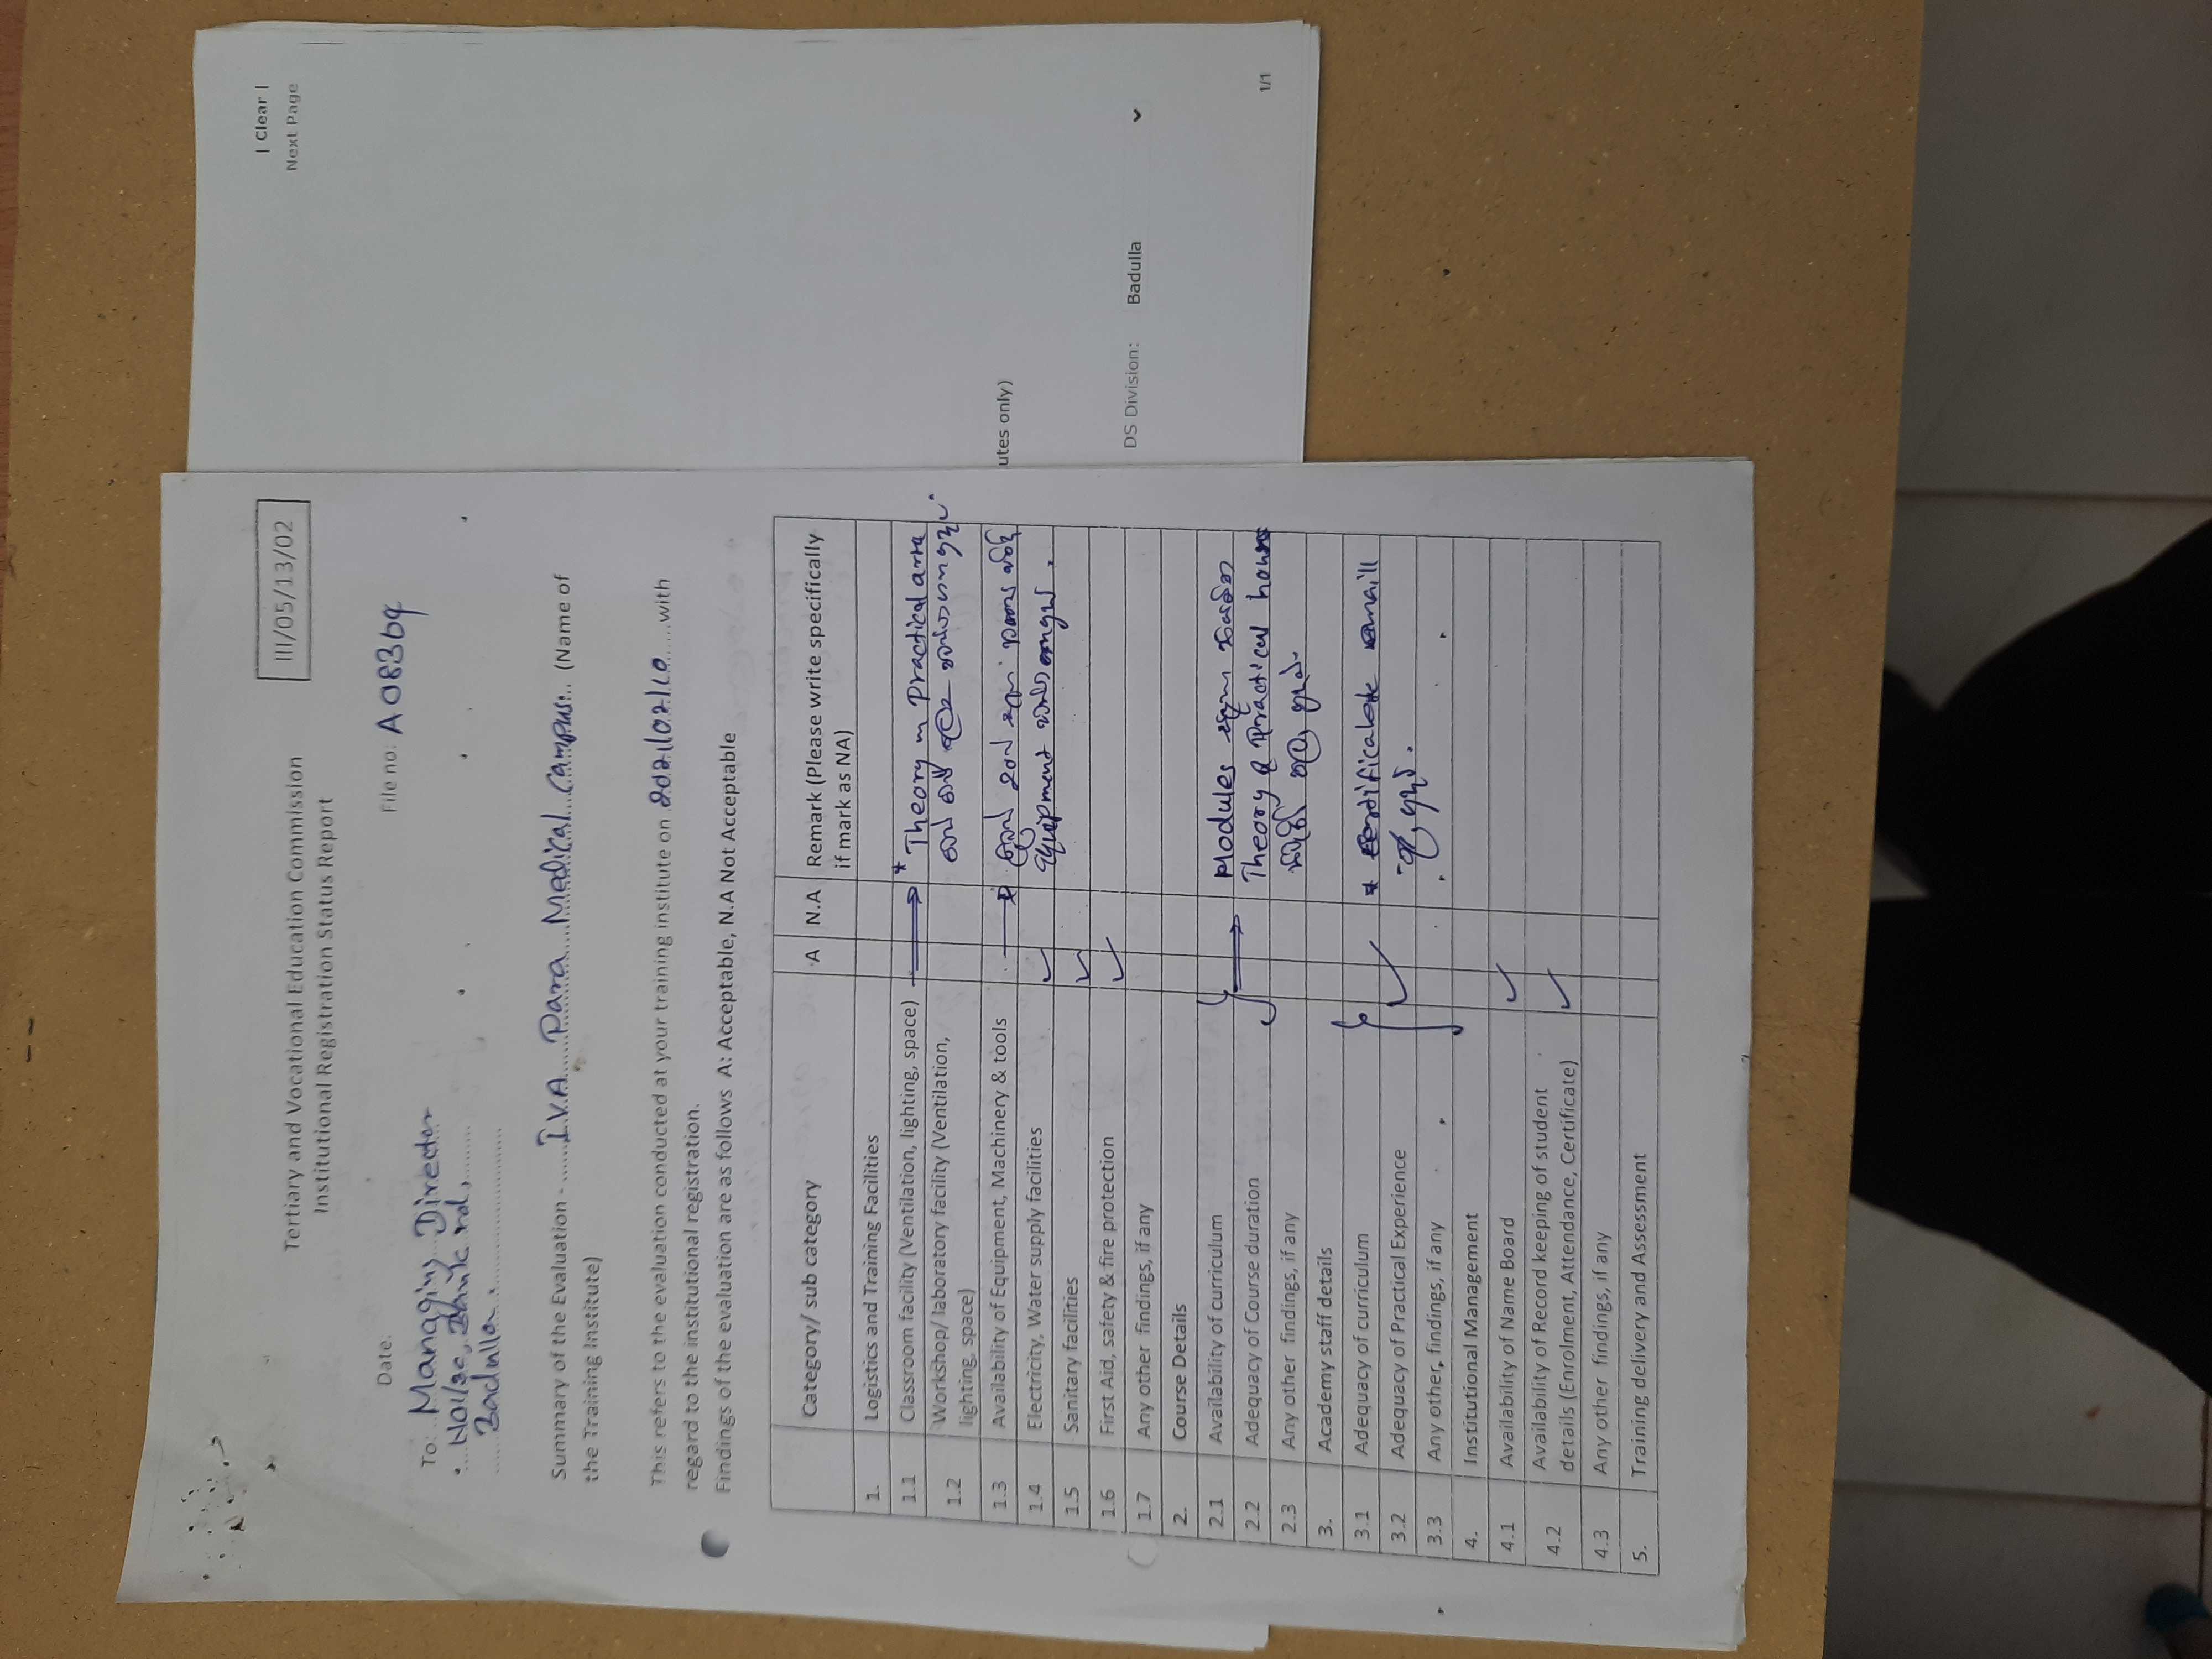 III/05/13/02
Tertiary and Vocational Education Commission
Institutional Registration Status Report
Date:
File no: A 08369
To: Managing Director
Badulla.
Summary of the Evaluation - I.V.A Para Medical Campus (Name of
the Training Institute)
This refers to the evaluation conducted at your training institute on with
regard to the institutional registration.
Findings of the evaluation are as follows A: Acceptable, N.A Not Acceptable
Category/ sub category A N.A Remark (Please write specifically
if mark as NA)
1. Logistics and Training Facilities
1.1 Classroom facility (Ventilation, lighting, space) * Theory Practical area
1.2 Workshop/ laboratory facility (Ventilation,
lighting, space)
1.3 Availability of Equipment, Machinery & tools
1.4 Electricity, Water supply facilities equipment
1.5 Sanitary facilities
1.6 First Aid, safety & fire protection
1.7 Any other findings, if any
2. Course Details
2.1 Availability of curriculum Modules
2.2 Adequacy of Course duration Theory & Practical hours
2.3 Any other findings, if any
3. Academy staff details
3.1 Adequacy of curriculum *
3.2 Adequacy of Practical Experience
3.3 Any other, findings, if any
4. Institutional Management
4.1 Availability of Name Board
4.2 Availability of Record keeping of student
details (Enrolment, Attendance, Certificate)
4.3 Any other findings, if any
5. Training delivery and Assessment
| Clear |
Next Page
utes only)
DS Division: Badulla
1/1